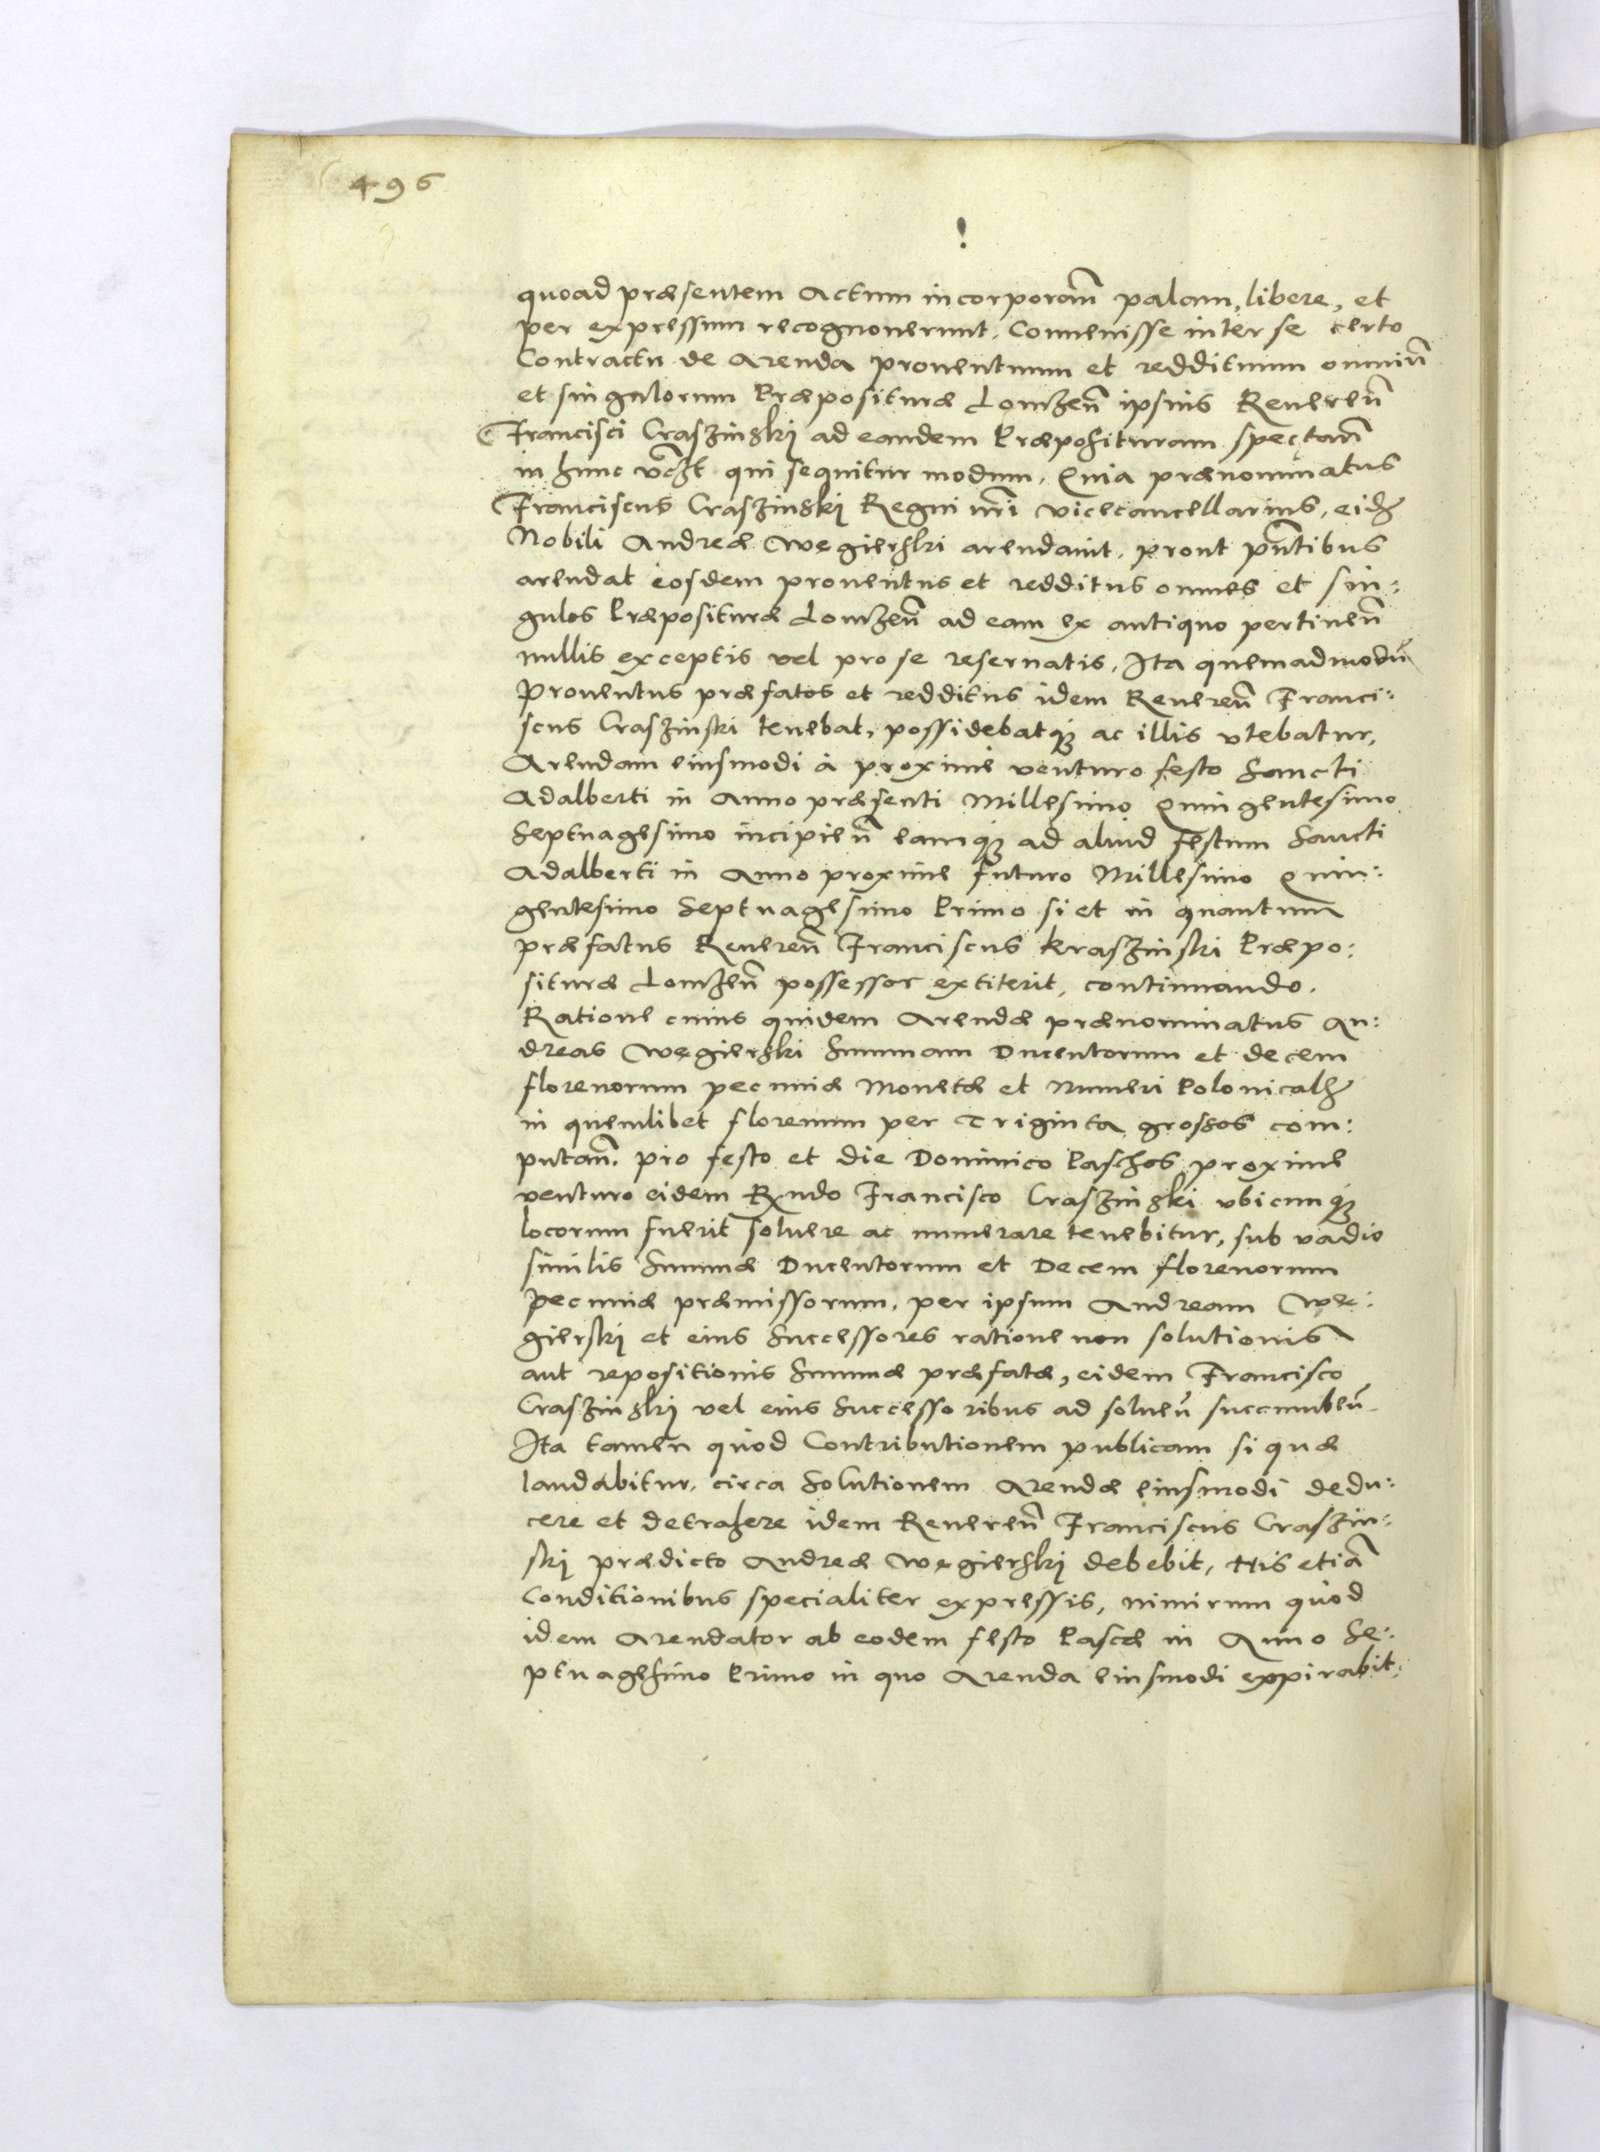 496
!
quoad præsentem Actum incorporañ palam, libere, et
per expressum recognouerunt. Conuenisse inter se certo
Contractu de Arenda prouentuum et reddituum omniũ
et singulorum Præpositurae Lomzeñ ipsius Reuereñ
Francisci Craszinski ad eandem Præposituram spectañ
in hunc qui sequitur modum. Quia prænominatus
Franciscus Craszinski Regni nr̃i Vicecancellarius, eidẽ
Nobili Andreæ Węgierski arendauit, prout pñtibus
arendat eosdem prouentus et redditus omnes et sin:
gulos Præpositurae Lomzeñ ad eam ex antiquo pertineñ
nullis exceptis vel pro se reseruatis, Ita quemadmodũ
Prouentus præfatos et redditus idem Reuereñ Franci:
scus Craszinski tenebat, possidebatqꝫ ac illis vtebatur,
Arendam eiusmodi à proximè venturo festo Sancti
Adalberti in Anno præsenti Millesimo Quingentesimo
Septuagesimo incipieñ eamqꝫ ad aliud festum Sancti
Adalberti in Anno proxime futuro Millesimo Quin:
gentesimo Septuagesimo Primo si et in quantum
præfatus Reuereñ Franciscus Kraszinski Præpo:
siturae Lomzeñ possessor extiterit, continuando.
Ratione cuius quidem Arendæ prænominatus An:
dreas Węgierski Summam Ducentorum et decem
florenorum pecuniæ Monetæ et Numeri Polonicalis
in quemlibet florenum per Triginta grossos com:
putañ. pro festo et die Dominico Paschos proxime
venturo eidem Rñdo Francisco Craszinski vbicunqꝫ
locorum fuerit soluere ac numerare tenebitur, sub vadio
similis Summæ Ducentorum et Decem florenorum
pecuniæ præmissorum, per ipsum Andream We:
gierski et eius Successores ratione non solutionis
aut repositionis Summæ præfatæ, eidem Francisco
Craszinski vel eius Successoribus ad solueñ succumbeñ
Ita tamen quòd Contributionem publicam si quæ
laudabitur, circa Solutionem Arendæ eiusmodi dedu:
cere et detrahere idem Reuereñ Franciscus Craszin:
ski prædicto Andreæ Węgierski debebit, His etiã
Conditionibus specialiter expressis, nimirum quòd
idem Arendator ab eodem festo Pascæ in Anno Se:
ptuagesimo Primo in quo Arenda eiusmodi expirabit: